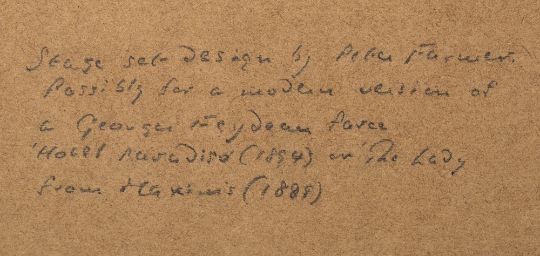 Stage set design by Peter Farmer.
Possibly for a modern version of
a Georges Feydeau farce
'Hotel Paradiso' (1894) or 'The Lady
from Maxim's (1899)